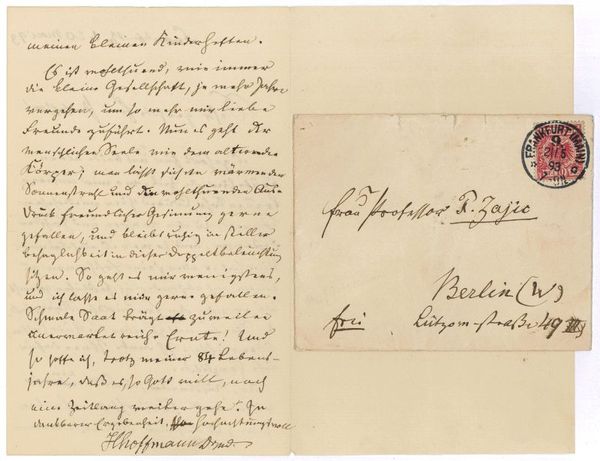 meinen kleinen Kinderheften.
Es ist wohlthuend, wie immer
die kleine Gesellschaft, je mehr Jahre
vergehen, um so mehr mir liebe
Freunde zuführt. Nun es geht der
menschlichen Seele wie dem alternden
Körper; man läßt sich den wärmenden
Sonnenstrahl und den wohlthuenden Aus-
druck freundlicher Gesinnung gerne
gefallen, und bleibt ruhig in stiller
Behaglichkeit in dieser Doppelbeleuchtung
sitzen. So geht es mir wenigstens,
und ich lasse es mir gerne gefallen.
Schmale Saat trägt zuweilen
unerwartet reiche Ernte! Und
so hoffe ich, trotz meiner 84 Lebens-
jahre, daß es, so Gott will, noch
eine Zeitlang weiter gehe! In
dankbarer Ergebenheit, hochachtungsvoll
H Hoffmann Dr. med.
FRANKFURT (MAIN)
9
93
Frau Professor F. Zajic
Berlin (W)
frei Lützow-straße 49 III